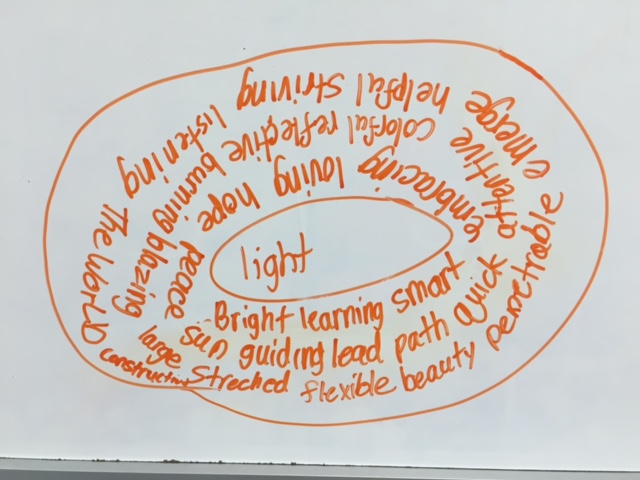 light
Bright learning smart embracing loving hope peace
sun guiding lead path quick attentive colorful reflective burning blazing large
Streched flexible beauty penetrable emerge helpful striving listening The WorLD construction